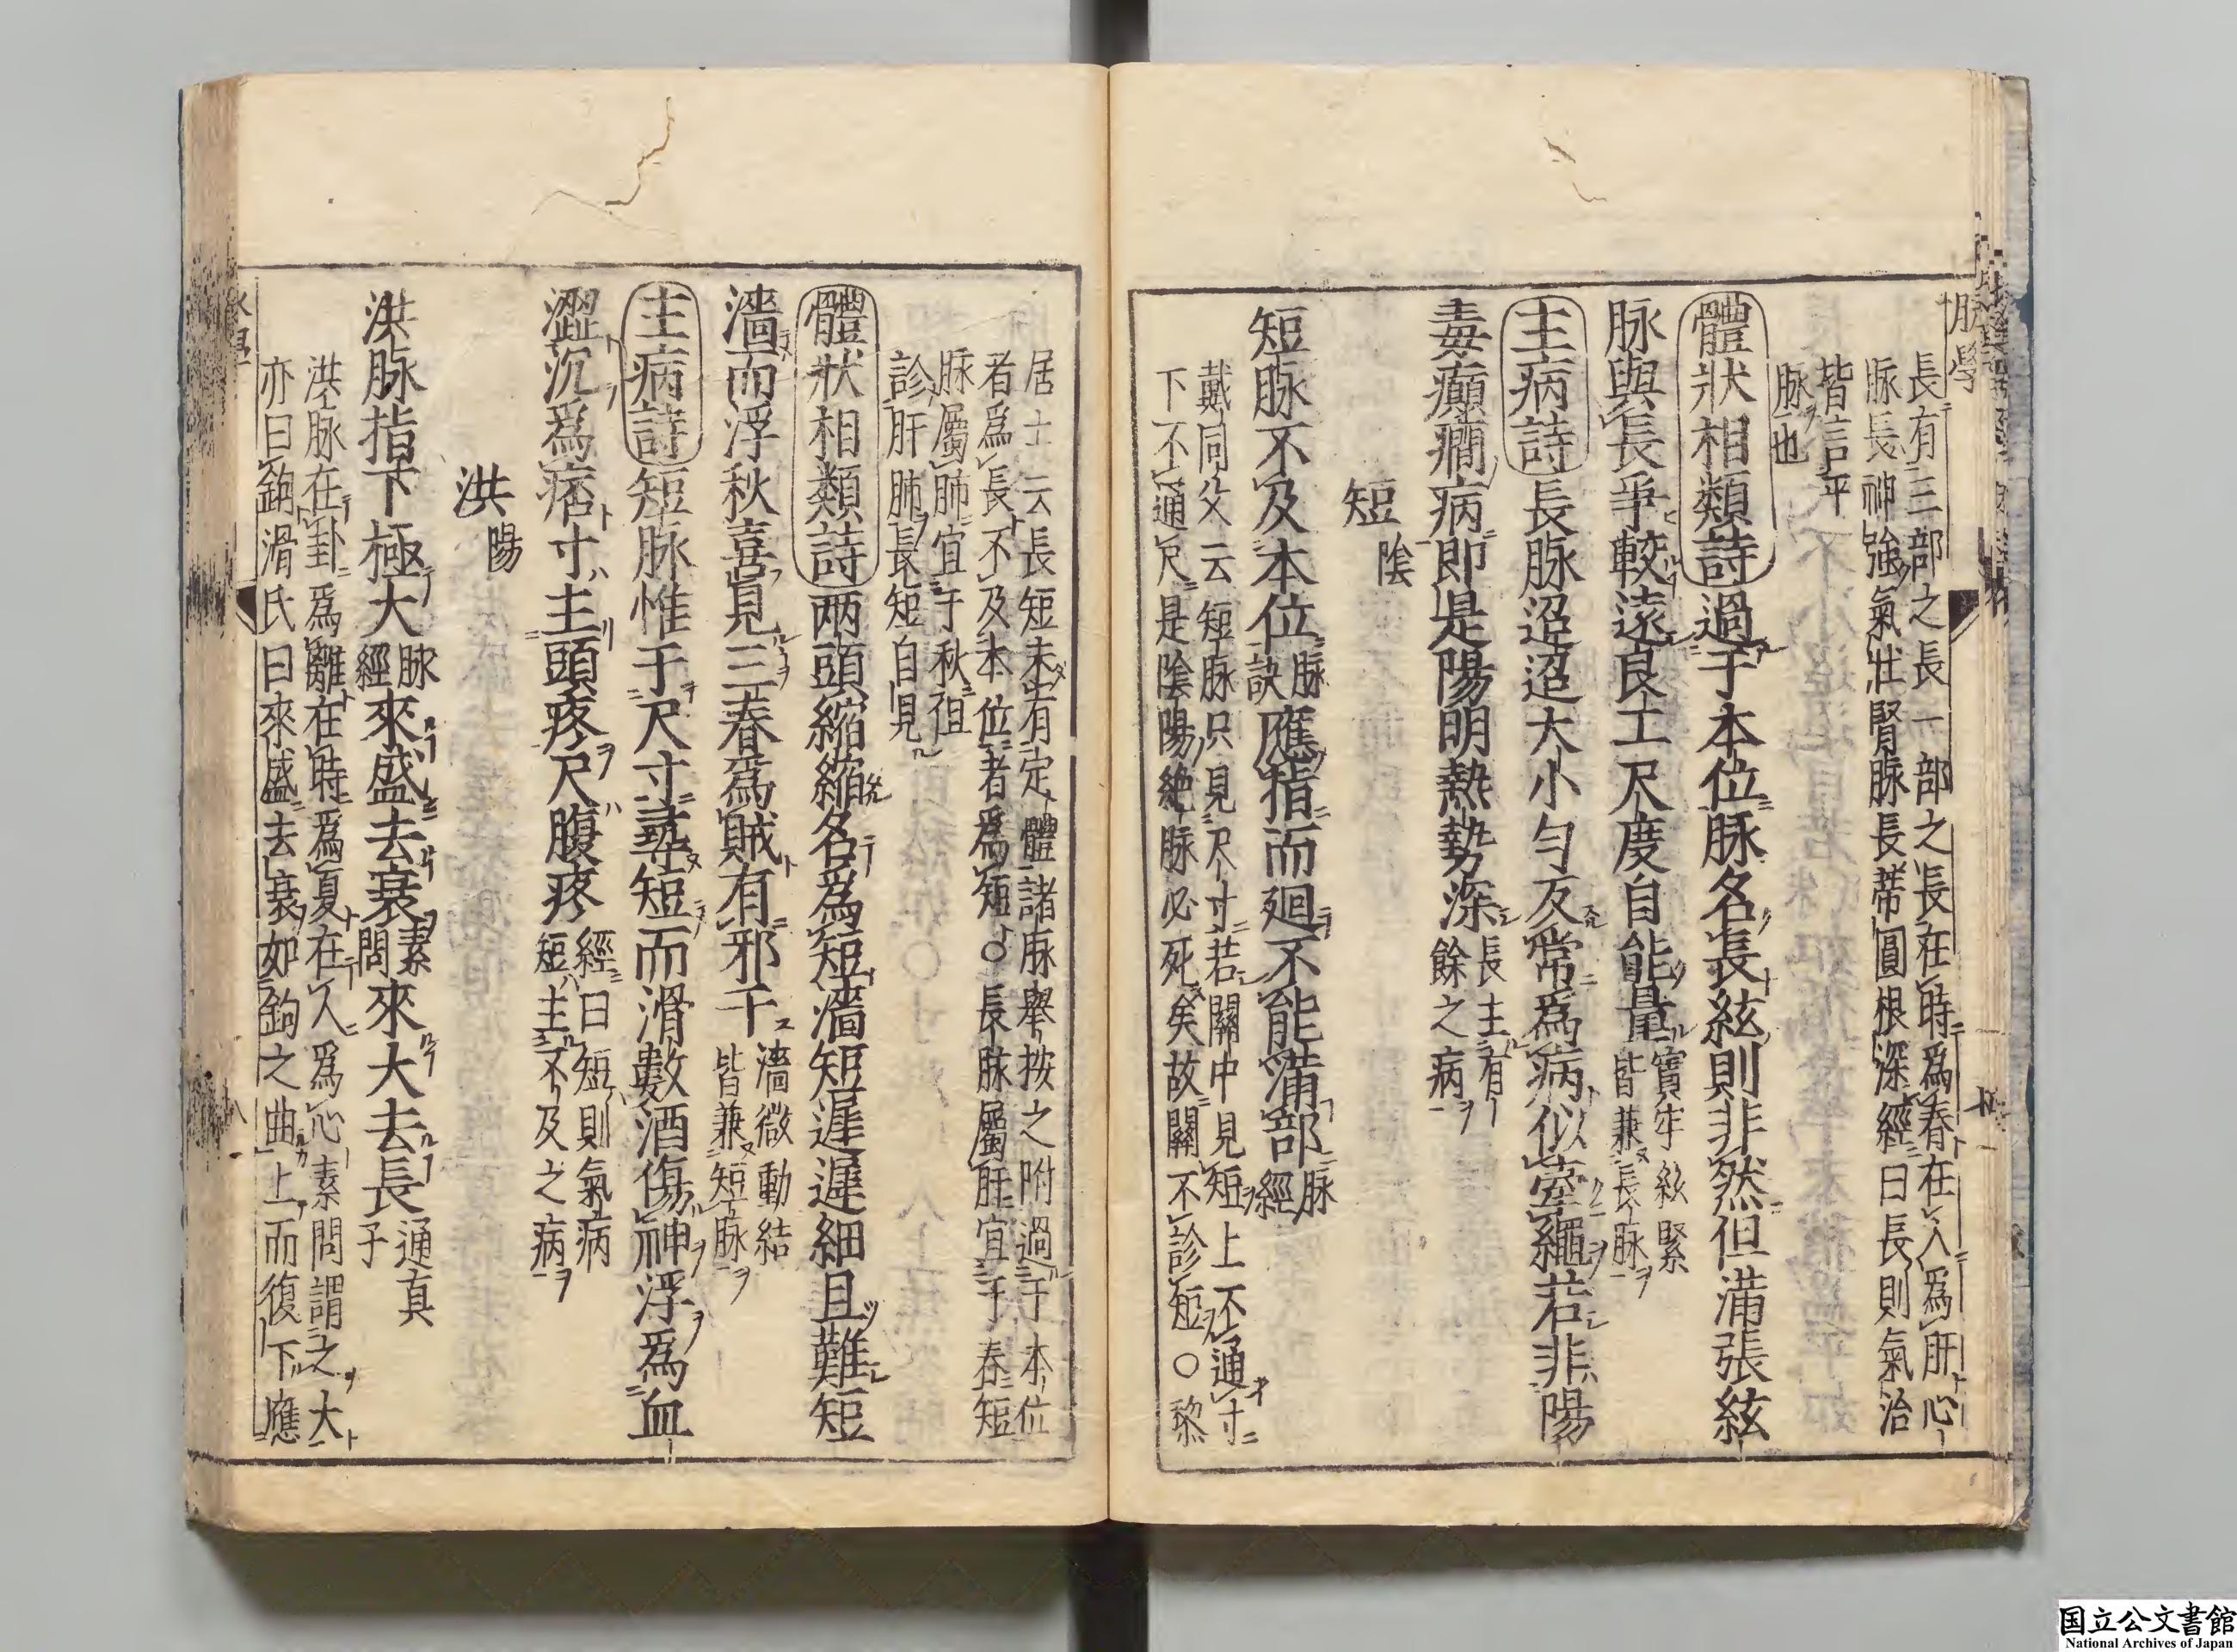 脉學
長有三部之長一部之長在時爲春在人爲肝心
脉長神強氣壯腎脉長蒂圓根深經曰長則氣治
皆言平
脉也
體狀相類詩過于本位脉名長絃則非然但滿張絃
脉與長爭較遠良工尺度自能量實牢絃緊皆兼長脉
主病詩長脉迢迢大小勻反常爲病似牽繩若非陽
毒癲癇病即是陽明熱勢深長主有餘之病
短陰
短脉不及本位脉訣應指而廻不能滿部脉經
戴同父云短脉只見尺寸若關中見短上不通寸
下不通尺是陰陽絶脉必死矣故關不診短○黎
居士云長短未有定體諸脉舉按之附過于本位
者爲長不及本位者爲短○長脉屬肝宜于春短
脉屬肺宜于秋但
診肝肺長短自見
體狀相類詩两頭縮縮名爲短濇短遲遲細且難短
濇而浮秋喜見三春爲賊有邪干濇微動結皆兼短脉
主病詩短脉惟于尺寸尋短而滑數酒傷神浮爲血
澀沉爲痞寸主頭疼尺腹疼經曰短則氣病短主不及之病
洪陽
洪脉指下極大脉經來盛去衰素問來大去長通真子
洪脉在卦爲離在時爲夏在人爲心素問謂之大
亦曰鉤滑氏曰來盛去衰如鉤之曲上而復下應
国立公文書館
National Archives of Japan